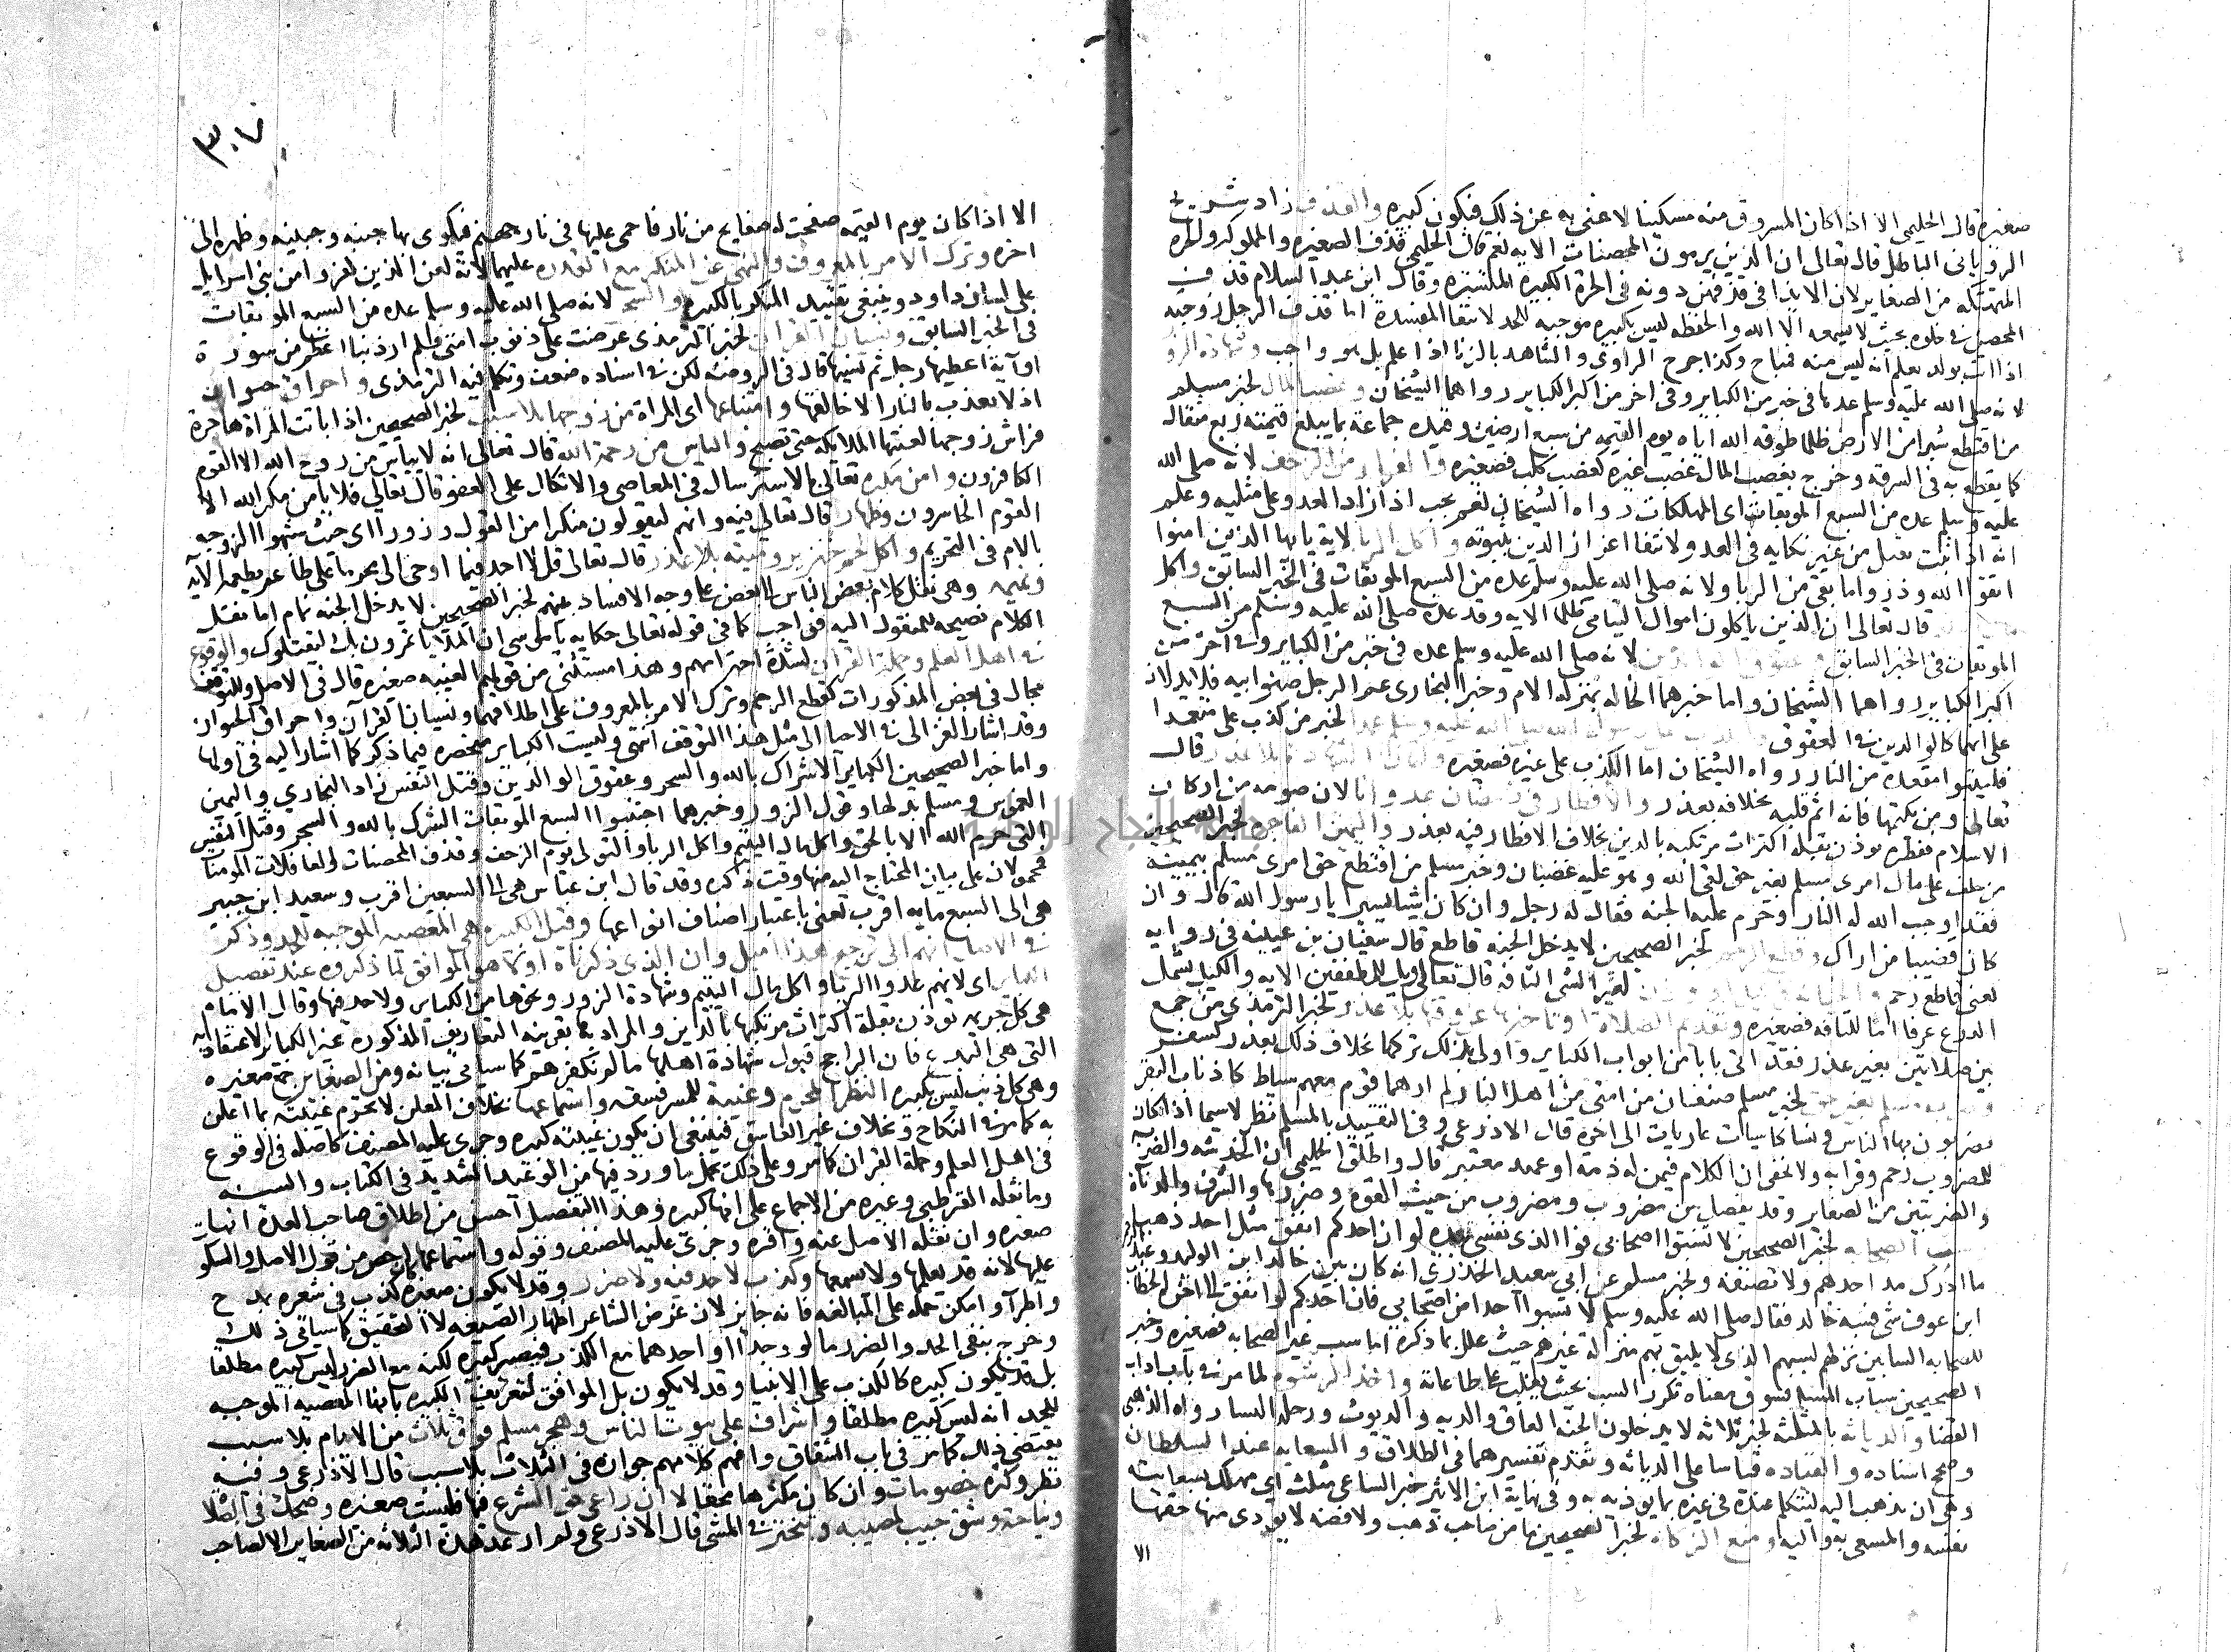 صغيرة قال الحليمي الا اذا كان المسروق منه مسكينا لا غنى به عن ذلك فيكون كبيرة والقذف زاد شريح
الروياني الباطل قال تعالى ان الذين يرمون المحصنات الاية نعم قال الحليمي قذف الصغيرة والمملوكة والحرة
المتهتكة من الصغاير لان الايذا في قذفهن دونه في الحرة الكبيرة المستترة وقال ابن عبد السلام قذف
المحصن في خلوة بحيث لا يسمعه الا الله والحفظه ليس بكبيرة موجبه للحد لانتفا المفسدة اما قذف الرجل زوجته
اذا اتت بولد يعلم انه ليس منه فمباح وكذا جرح الراوي والشاهد بالزنا اذا علم بل هو واجب وشهادة الزور
لانه صلى الله عليه وسلم عدها في خبر من الكباير وفي اخر من اكبر الكباير رواهما الشيخان وغصب المال لخبر مسلم
من اقتطع شبرا من الارض ظلما طوقه الله اياه يوم القيمه من سبع ارضين وقيده جماعة بما يبلغ قيمته ربع مثقال
كما يقطع به في السرقة وخرج بغصب المال غصب غيره كغصب كلب فصغيرة والفرار من الزحف لانه صلى الله
عليه وسلم عده من السبع الموبقات اي المهلكات رواه الشيخان نعم يجب اذا زاد العدو على مثليه وعلم
انه اذا ثبت يقتل من غير نكاية في العدو لانتفا اعزاز الدين بثبوته واكل الربا لاية يايها الذين امنوا
اتقوا الله وذروا ما بقي من الربا ولانه صلى الله عليه وسلم عده من السبع الموبقات في الخبر السابق واكل
قال تعالى ان الذين ياكلون اموال اليتامى ظلما الايه وقد عده صلى الله عليه وسلم من السبع
الموبقات في الخبر السابق وعقوق الوالدين لانه صلى الله عليه وسلم عده في خبر من الكباير وفي اخر من
اكبر الكباير رواهما الشيخان واما خبرهما الخالة بمنزلة الام وخبر البخاري عم الرجل صنو ابيه فلا يدلان
على انهما كالوالدين في العقوق والكذب على رسول الله صلى الله عليه وسلم عمدا لخبر من كذب علي متعمدا
فليتبوا مقعده من النار رواه الشيخان اما الكذب على غيره فصغيرة وكتمان الشهادة بلا عذر قال
تعالى ومن يكتمها فانه اثم قلبه بخلافه بعذر والافطار في رمضان عدوانا لان صومه من اركان
الاسلام ففطره يوذن بقلة اكتراث مرتكبه بالدين بخلاف الافطار فيه بعذر واليمين الفاجرة لخبر الصحيحين
من حلف على مال امرى مسلم بغير حق لقي الله وهو عليه غضبان وخبر مسلم من اقتطع حق امرى مسلم بيمينه
فقد اوجب الله له النار وحرم عليه الجنه فقال له رجل وان كان شيا يسيرا يا رسول الله قال وان
كان قضيبا من اراك وقطع الرحم لخبر الصحيحين لا يدخل الجنه قاطع قال سفيان بن عيينه في روايه
يعني قاطع رحم لغير الشي التافه قال تعالى ويل للمطففين الايه والكيل يشمل
الذرع عرفا اما للتافه فصغيره وتقديم الصلاة او تاخيرها عن وقتها بلا عذر لخبر الترمذي من جمع
بين صلاتين بغير عذر فقد اتى بابا من ابواب الكباير واولى بذلك تركها بخلاف ذلك بعذر كسفر
وضرب مسلم بغير حق لخبر مسلم صنفان من امتي من اهل النار لم ارهما قوم معهم سياط كاذناب البقر
يضربون بها الناس ونسا كاسيات عاريات الى اخره قال الاذرعي وفي التقييد بالمسلم نظر لاسيما اذا كان
للمضروب رحم وقرابه ولا يخفى ان الكلام فيمن له ذمه او عهد معتبر قال واطلق الحليمي ان الخدشه والضربه
والضربتين من الصغاير وقد يفصل بين مضروب ومضروب من حيث القوة وضررها والشرف والدناة
وسب الصحابه لخبر الصحيحين لا تسبوا اصحابي فوالذي نفسي بيده لو ان احدكم انفق مثل احد ذهبا
ما ادرك مد احدهم ولا نصيفه ولخبر مسلم عن ابي سعيد الخدري انه كان بين خالد ابن الوليد وعبد الرحمن
ابن عوف شي فسبه خالد فقال صلى الله عليه وسلم لا تسبوا احدا من اصحابي فان احدكم لو انفق الى اخره الخطاب
للصحابه السابين نزلهم لسبهم الذي لا يليق بهم منزلة غيرهم حيث علل بما ذكره اما سب غير الصحابه فصغيره وخبر
الصحيحين سباب المسلم فسوق معناه تكرر السب بحيث يغلب على طاعاته واخذ الرشوة لما مر في باب اداب
القضا والدياثه بالمثلثه لخبر ثلاثه لا يدخلون الجنه العاق والديه والديوث ورجلة النسا رواه الذهبي
وصحح اسناده والقياده قياسا على الدياثه وتقدم تفسيرهما في الطلاق والسعايه عند السلطان
وهي ان يذهب اليه ليتكلم عنده في غيره بما يوذيه به وفي نهاية ابن الاثير خبر الساعي مثلث اي مهلك بسعايته
نفسه والمسعي به واليه ومنع الزكاة لخبر الصحيحين ما من صاحب ذهب ولا فضه لا يودي منها حقها
الا
٣٠٧
الا اذا كان يوم القيمه صفحت له صفايح من نار فاحمي عليها في نار جهنم فيكوى بها جنبه وجبينه وظهره الى
اخره وترك الامر بالمعروف والنهي عن المنكر مع القدره عليهما لاية لعن الذين كفروا من بني اسرايل
على لسان داود وينبغي تقييد المنكر بالكبيرة والسحر لانه صلى الله عليه وسلم عده من السبع الموبقات
في الخبر السابق ونسيان القران لخبر الترمذي عرضت علي ذنوب امتي فلم ار ذنبا اعظم من سورة
او آية اعطيها رجل ثم نسيها قال في الروضه لكن في اسناده ضعف وتكلم فيه الترمذي واحراق حيوان
اذ لا يعذب بالنار الا خالقها وامتناعها اي المراة من زوجها بلا سبب لخبر الصحيحين اذا باتت المراة هاجرة
فراش زوجها لعنتها الملايكه حتى تصبح والياس من رحمة الله قال تعالى انه لا يياس من روح الله الا القوم
الكافرون وامن مكره تعالى بالاسترسال في المعاصي والاتكال على العفو قال تعالى فلا يامن مكر الله الا
القوم الخاسرون وظهار قال تعالى فيه وانهم ليقولون منكرا من القول وزورا اي حيث شبهوا الزوجه
بالام في التحريم واكل لحم خنزير وميته بلا عذر قال تعالى قل لا اجد فيما اوحي الى محرما على طاعم يطعمه الايه
ونميمه وهي نقل كلام بعض الناس الى بعض على وجه الافساد بينهم لخبر الصحيحين لا يدخل الجنه نمام اما نقل
الكلام نصيحه للمنقول اليه فواجب كما في قوله تعالى حكايه يا موسى ان الملا ياتمرون بك ليقتلوك والوقوع
في اهل العلم وحملة القران لشدة احترامهم وهذا مستثنى من قولهم الغيبه صغيره قال في الاصل وللتوقف
مجال في بعض المذكورات كقطع الرحم وترك الامر بالمعروف على اطلاقهما ونسيان القرآن واحراق الحيوان
وقد اشار الغزالي في الاحيا الى مثل هذا التوقف انتهى وليست الكباير منحصره فيما ذكر كما اشار اليه في اولها
واما خبر الصحيحين الكباير الاشراك بالله والسحر وعقوق الوالدين وقتل النفس زاد البخاري واليمين
الغموس ومسلم بدلها وقول الزور وخبرهما اجتنبوا السبع الموبقات الشرك بالله والسحر وقتل النفس
التي حرم الله الا بالحق واكل مال اليتيم واكل الربا والتولي يوم الزحف وقذف المحصنات الغافلات المومنات
فمحمولان على بيان المحتاج اليه منها وقت ذكره وقد قال ابن عباس هي الى السبعين اقرب وسعيد ابن جبير
هي الى السبع مايه اقرب يعني باعتبار اصناف انواعها وقيل الكبيره هي المعصيه الموجبه للحد وذكر
في الاصل انهم الى ترجيح هذا اميل وان الذي ذكرناه اولا هو الموافق لما ذكروه عند تفصيل
الكباير اي لانهم عدوا الربا واكل مال اليتيم وشهادة الزور ونحوها من الكباير ولا حد فيها وقال الامام
هي كل جريمه توذن بقلة اكتراث مرتكبها بالدين والمراد بها بقرينه التعاريف المذكورة غير الكباير الاعتقاديه
التي هي البدع فان الراجح قبول شهادة اهلها ما لم نكفرهم كما سياتي بيانه ومن الصغاير جمع صغيره
وهي كل ذنب ليس بكبيره النظر المحرم وغيبة للمسر فسقه واستماعها بخلاف المعلن لا تحرم غيبته بما اعلن
به كما مر في النكاح وبخلاف غير الفاسق فينبغي ان يكون غيبته كبيره وجرى عليه المصنف كاصله في الوقوع
في اهل العلم وحملة القران كما مر وعلى ذلك يحمل ما ورد فيها من الوعيد الشديد في الكتاب والسنه
وما نقله القرطبي وغيره من الاجماع على انها كبيره وهذا التفصيل احسن من اطلاق صاحب العدة انها
صغيره وان نقله الاصل عنه واقره وجرى عليه المصنف وقوله واستماعها اخص من قول الاصل والسكوت
عليها لانه قد يعلمها ولا يسمعها وكذب لا حد فيه ولا ضرر وقد لا يكون صغيره ككذب في شعره بمدح
واطرآ وامكن حمله على المبالغه فانه جايز لان غرض الشاعر اظهار الصنعه لا التحقيق كما سياتي ذلك
وخرج بنفي الحد والضرر ما لو وجدا او احدهما مع الكذب فيصير كبيره لكنه مع الضرر ليس كبيره مطلقا
بل قد يكون كبيره كالكذب على الانبيا وقد لا يكون بل الموافق لتعريف الكبيره بانها المعصيه الموجبه
للحد انه ليس كبيره مطلقا واشراف على بيوت الناس وهجر مسلم فوق ثلاث من الايام بلا سبب
يقتضي ذلك كما مر في باب الشقاق وافهم كلامهم جوازه في الثلاث بلا سبب قال الاذرعي وفيه
نظر وكثره خصومات وان كان مكثرها محقا لا ان راعى حق الشرع فيها فليست صغيره وضحك في الصلاة
ونياحة وشق جيب لمصيبه وتبختر في المشي قال الاذرعي ولم ار عد هذه الثلاثه من الصغاير الا لصاحب